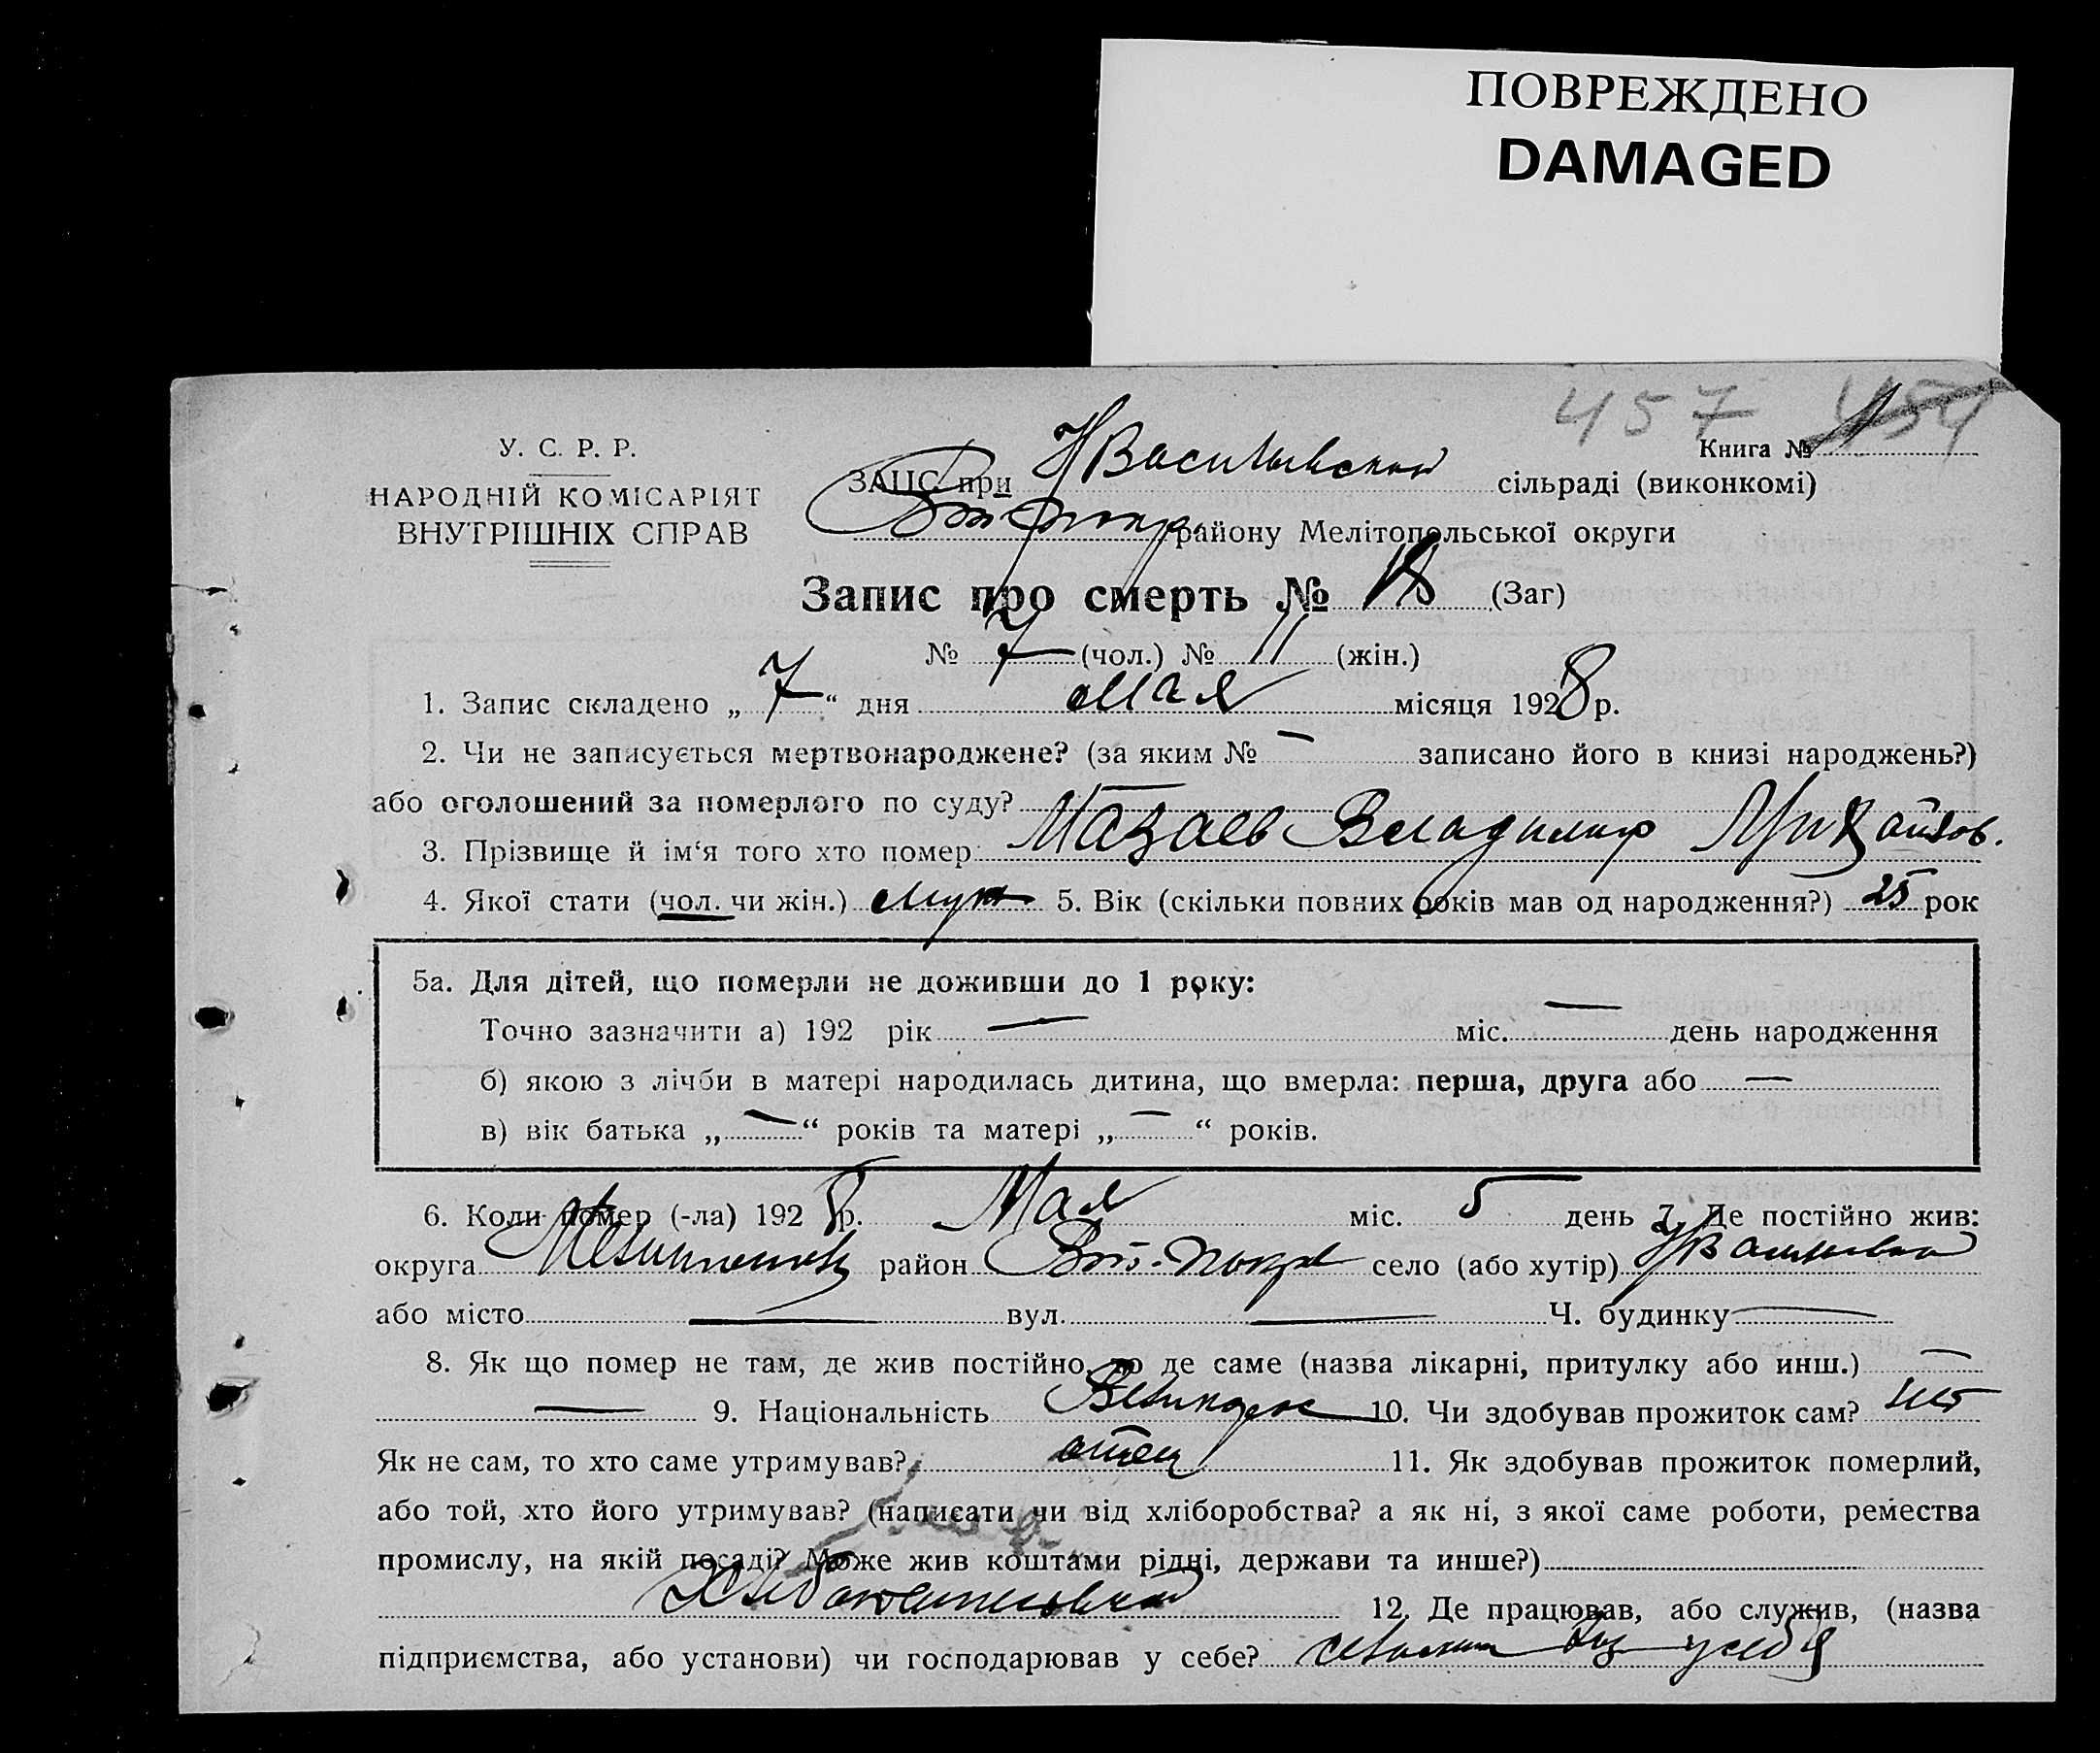 ПОВРЕЖДЕНО
DAMAGED
457 454
У. С. Р. Р.
НАРОДНІЙ КОМІСАРІЯТ
ВНУТРІШНІХ СПРАВ
Книга №
ЗАГС при НВасильевской сільраді (виконкомі)
району Мелітопольської округи
Запис про смерть № 18 (Заг)
№ 7 (чол.) № 11 (жін.)
1. Запис складено „ 7 “ дня мая місяця 1928 р.
2. Чи не записується мертвонароджене? (за яким № — записано його в книзі народжень?)
або оголошений за померлого по суду?
3. Прізвище й ім‘я того хто помер Мазаев Владимир Михайлов.
4. Якої стати (чол. чи жін.) муж 5. Вік (скільки повних років мав од народження?) 25 рок
5а. Для дітей, що померли не доживши до 1 року:
Точно зазначити а) 192 рік — міс. — день народження
б) якою з лічби в матері народилась дитина, що вмерла: перша, друга або —
в) вік батька „ — “ років та матері „ — “ років.
6. Коли помер (-ла) 1928 р. Мая міс. 5 день 7. Де постійно жив:
округа район Бот-Покр село (або хутір)
або місто — вул. — Ч. будинку —
8. Як що помер не там, де жив постійно, то де саме (назва лікарні, притулку або инш.) —
— 9. Національність Великорос 10. Чи здобував прожиток сам? нет
Як не сам, то хто саме утримував? отец 11. Як здобував прожиток померлий,
або той, хто його утримував? (написати чи від хліборобства? а як ні, з якої саме роботи, ремества
промислу, на якій посаді? Може жив коштами рідні, держави та инше?)
12. Де працював, або служив, (назва
підприємства, або установи) чи господарював у себе? у себя